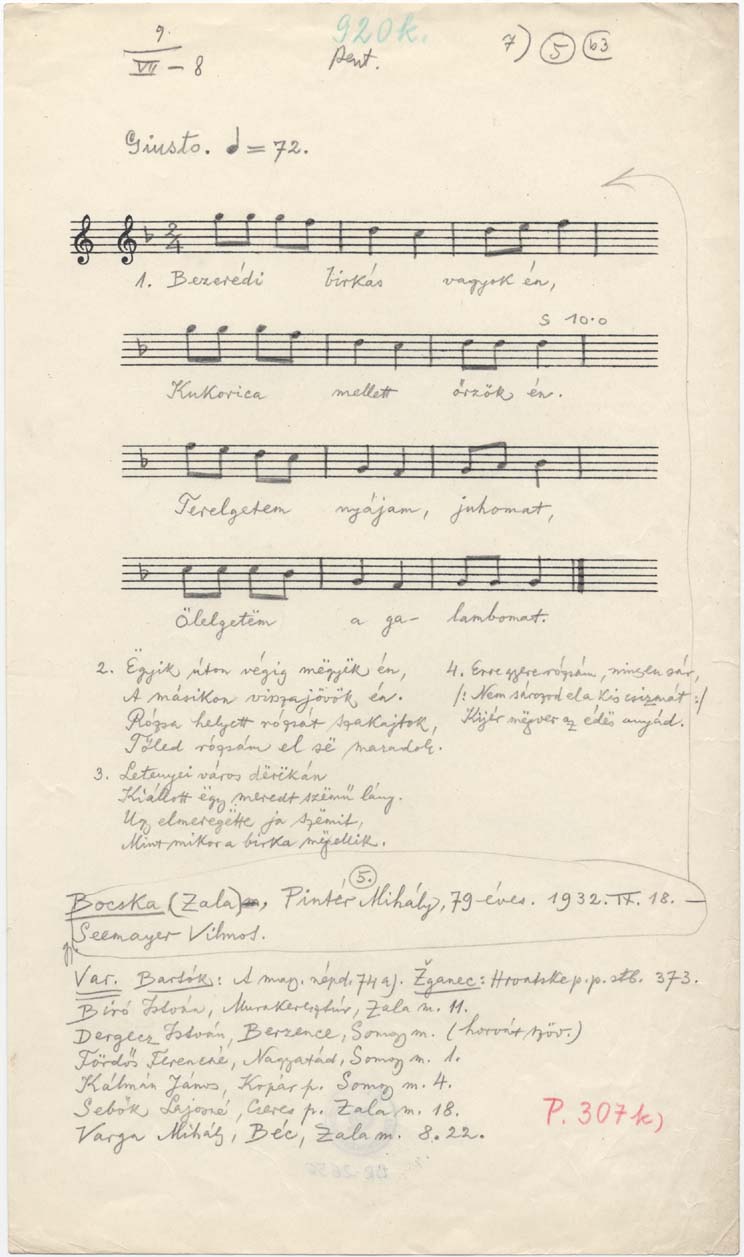 9.
VII - 8
920k.
Pent.
7) 5 b3
Giusto. ♩ = 72.
2/4
1. Bezerédi birkás vagyok én,
S 10.0
Kukorica mellett őrzök én.
Terelgetem nyájam, juhomat,
Ölelgetëm a ga- lambomat.
2. Ëgyik úton végig mëgyëk én,
A másikon visszajövök én.
Rózsa helyett rózsát szakajtok,
Tőled rózsám el së maradok.
3. Letenyei város dërëkán
Kiállott ëgy meredt szëmű lány.
Ugy elmeregëtte ja szëmit,
Mint mikor a birka mëgellik.
4. Erre gyere rózsám, nincsen sár,
/: Nem sározod el a kis csizmát :/
Kijér mëgver az édës anyád.
5.
Bocska (Zala), Pintér Mihály, 79 éves. 1932. IX. 18. -
Seemayer Vilmos.
Var. Bartók: A mag. népd. 74a). Žganec: Hrvatske p. p. stb. 373.
Bíró István, Murakeresztúr, Zala m. 11.
Dergecz István, Berzence, Somogy m. (horvát szöv.)
Fördős Ferencné, Nagyatád, Somogy m. 1.
Kálmán János, Kopár p. Somogy m. 4.
Sebők Lajosné, Cseres p. Zala m. 18.
Varga Mihály, Béc, Zala m. 8. 22.
P. 307k)